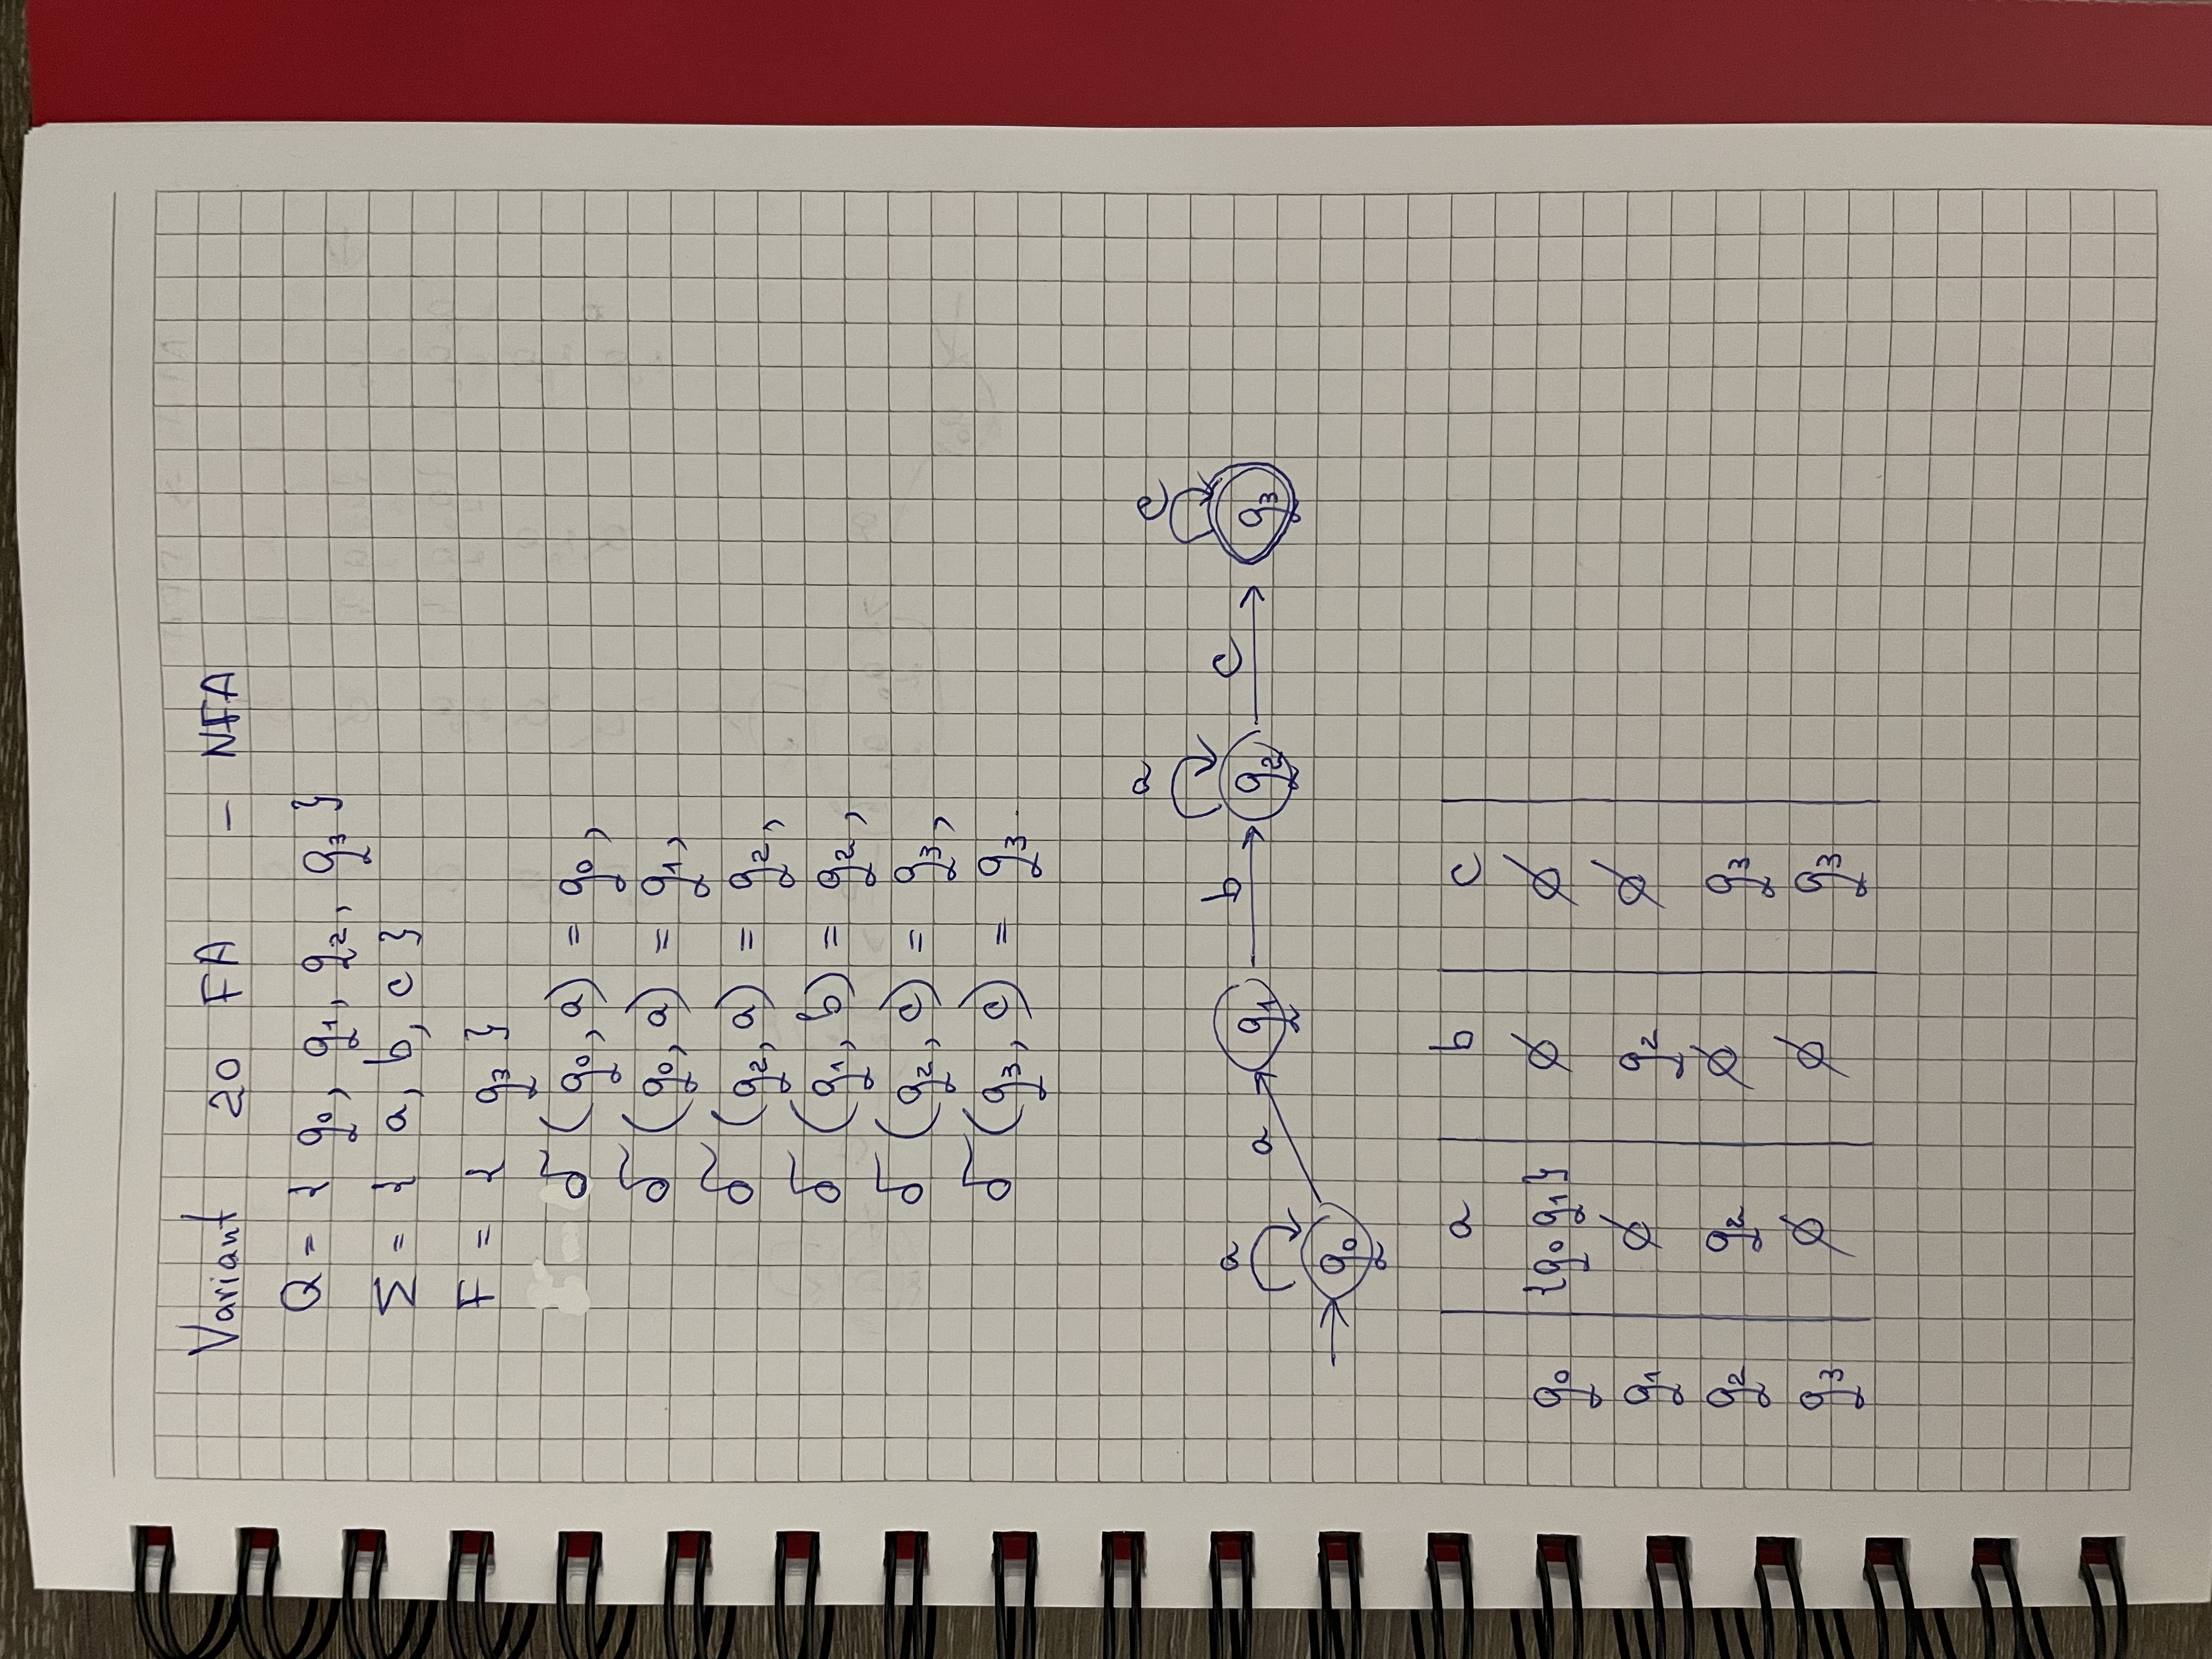 Variant 20 FA - NFA
Q = { q0, q1, q2, q3 }
Σ = { a, b, c }
F = { q3 }
δ (q0, a) = q0,
δ (q0, a) = q1,
δ (q2, a) = q2,
δ (q1, b) = q2,
δ (q2, c) = q3,
δ (q3, c) = q3.
a c
a a q1 b q2 c q3
q0
a b c
q0 {q0 q1} ∅ ∅
q1 ∅ q2 ∅
q2 q2 ∅ q3
q3 ∅ ∅ q3